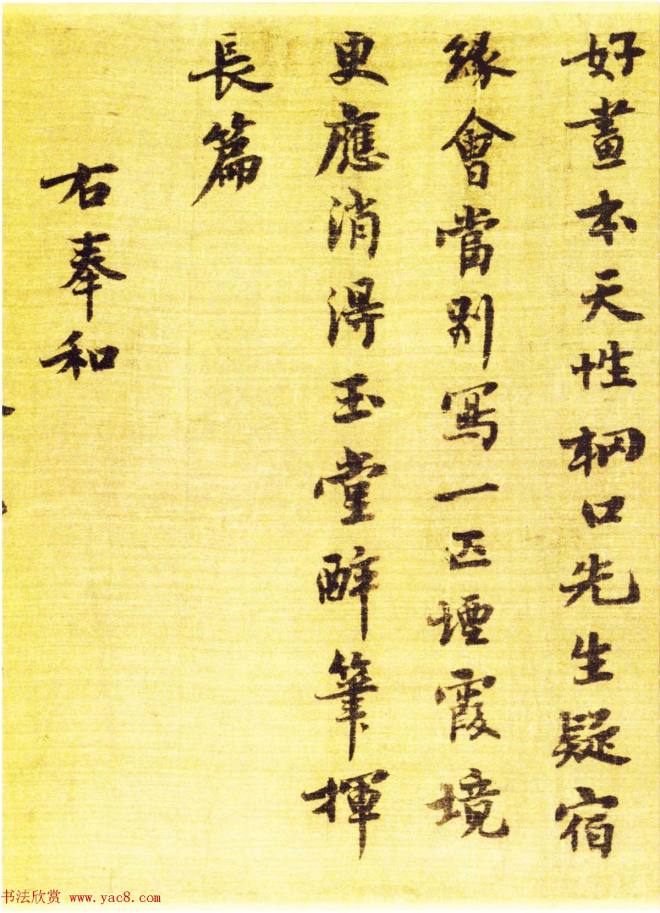 好畫本天性輞口先生疑宿
緣會當別寫一匹煙霞境
更應消得玉堂醉筆揮
長篇
右奉和
书法欣赏 www.yac8.com